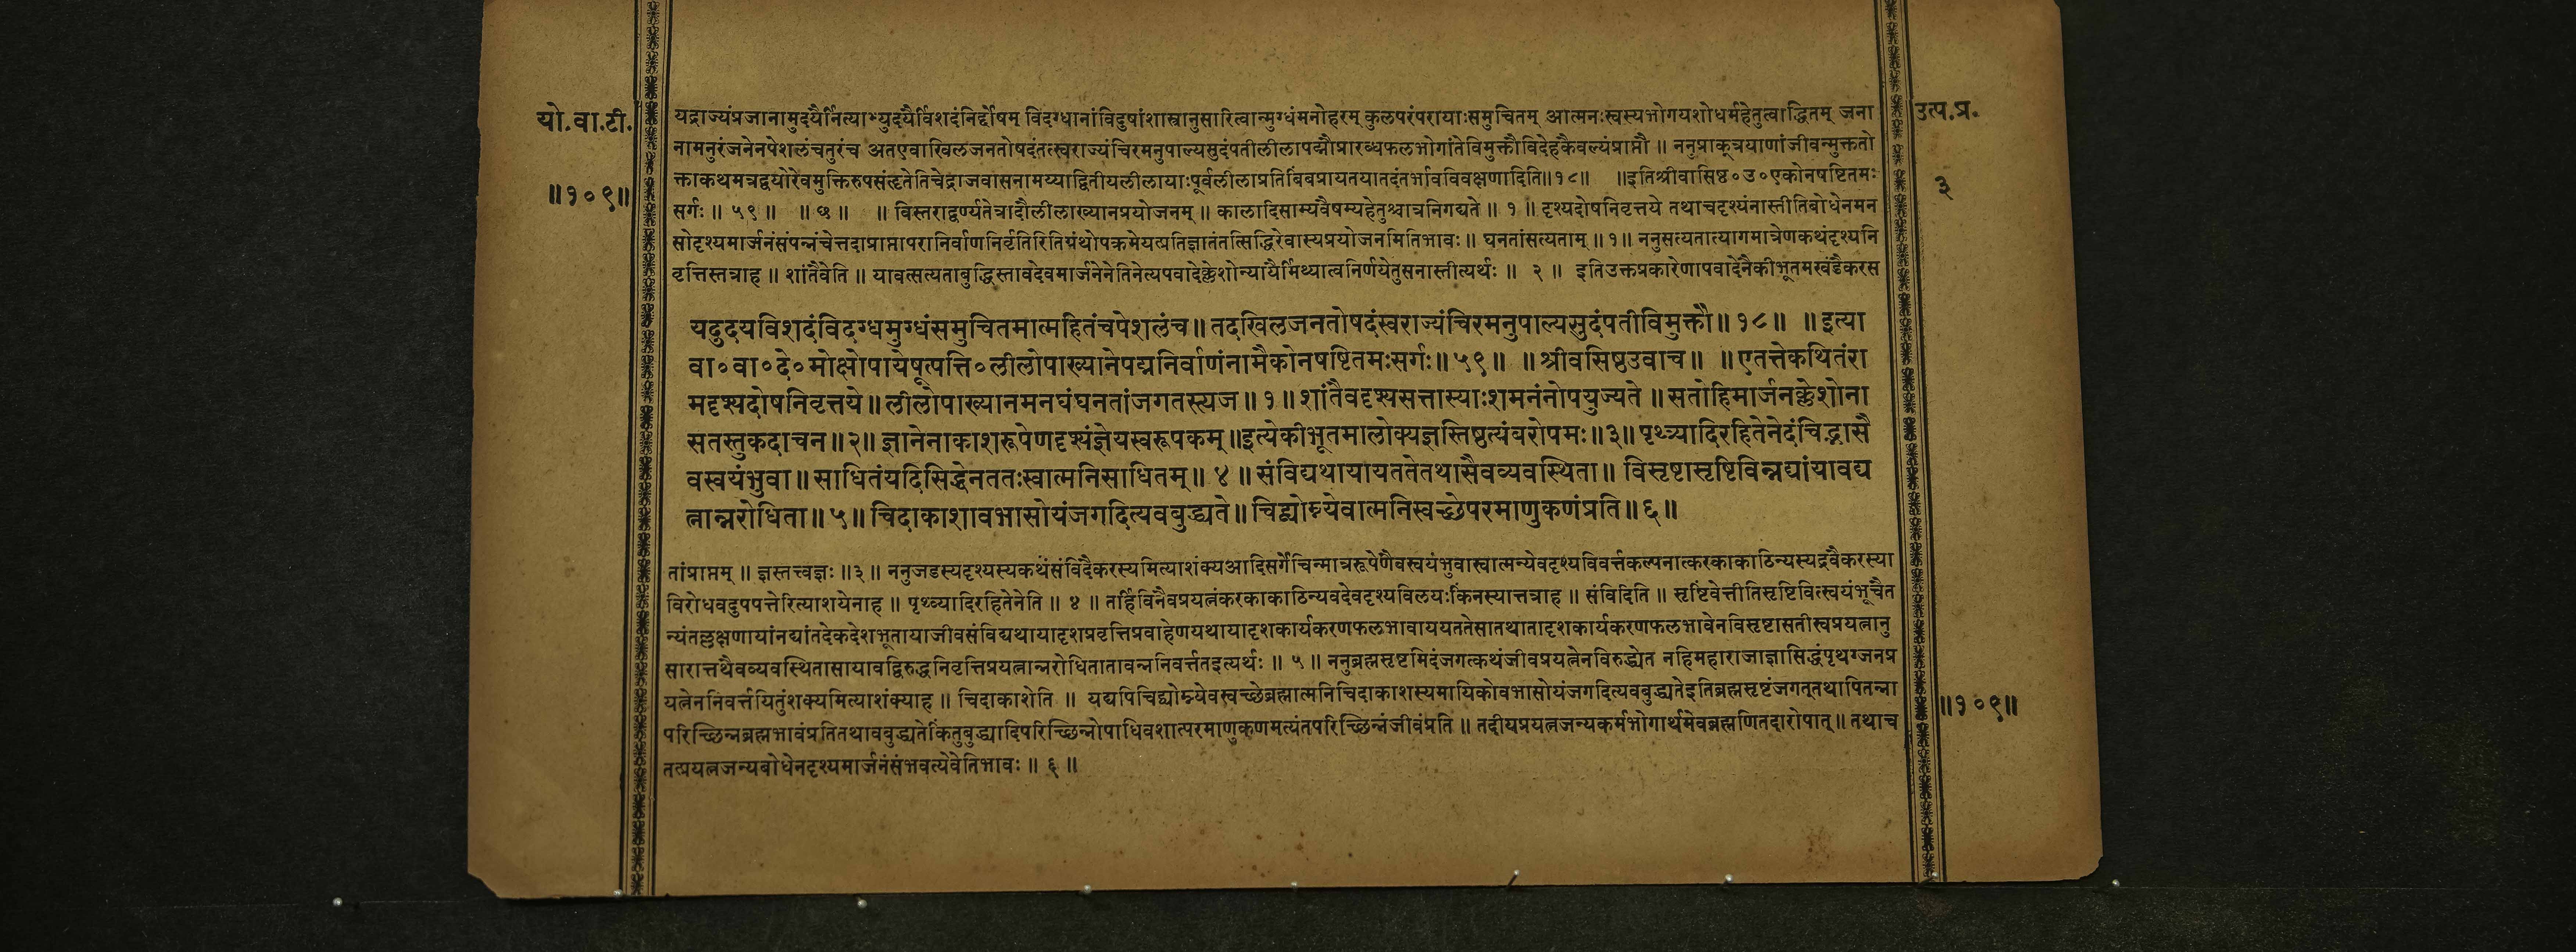 यो.वा.टी.
॥१०९॥
यद्राज्यंप्रजानामुदयैर्नित्याभ्युदयैर्विशदंनिर्दोषम् विदग्धानांविदुषांशास्त्रानुसारित्वान्मुग्धंमनोहरम् कुलपरंपरायाःसमुचितम् आत्मनःस्वस्यभोगयशोधर्महेतुत्वाद्धितम् जना
नामनुरंजनेनपेशलंचतुरंच अतएवाखिलजनतोषदंतत्स्वराज्यंचिरमनुपाल्यसुदंपतीलीलापद्मौप्रारब्धफलभोगांतेविमुक्तौविदेहकैवल्यंप्राप्तौ ॥ ननुप्राक्त्रयाणांजीवन्मुक्ततो
क्ताकथमत्रद्वयोरेवमुक्तिरुपसंहृतेतिचेद्राजवासनामय्याद्वितीयलीलायाःपूर्वलीलाप्रतिबिंबप्रायतयातदंतर्भावविवक्षणादिति॥१८॥ ॥इतिश्रीवासिष्ठ०उ०एकोनषष्टितमः
सर्गः ॥ ५९ ॥ ॥ छ ॥ ॥ विस्तराद्वर्ण्यतेत्रादौलीलाख्यानप्रयोजनम् ॥ कालादिसाम्यवैषम्यहेतुश्चात्रनिगद्यते ॥ १ ॥ दृश्यदोषनिवृत्तये तथाचदृश्यंनास्तीतिबोधेनमन
सोदृश्यमार्जनंसंपन्नंचेत्तदाप्राप्तापरानिर्वाणनिर्वृतिरितिग्रंथोपक्रमेयत्प्रतिज्ञातंतत्सिद्धिरेवास्यप्रयोजनमितिभावः ॥ घनतांसत्यताम् ॥ १॥ ननुसत्यतात्यागमात्रेणकथंदृश्यनि
वृत्तिस्तत्राह ॥ शांतैवेति ॥ यावत्सत्यताबुद्धिस्तावदेवमार्जनेनेतिनेत्यपवादेक्लेशोन्यायैर्मिथ्यात्वनिर्णयेतुसनास्तीत्यर्थः ॥ २ ॥ इतिउक्तप्रकारेणापवादेनैकीभूतमखंडैकरस
यदुदयविशदंविदग्धमुग्धंसमुचितमात्महितंचपेशलंच॥तदखिलजनतोषदंस्वराज्यंचिरमनुपाल्यसुदंपतीविमुक्तौ॥१८॥ ॥इत्या
वा०वा०दे०मोक्षोपायेषूत्पत्ति०लीलोपाख्यानेपद्मनिर्वाणंनामैकोनषष्टितमःसर्गः॥५९॥ ॥श्रीवसिष्ठउवाच॥ ॥एतत्तेकथितंरा
मदृश्यदोषनिवृत्तये॥लीलोपाख्यानमनघंघनतांजगतस्त्यज॥१॥शांतैवदृश्यसत्तास्याःशमनंनोपयुज्यते॥सतोहिमार्जनक्लेशोना
सतस्तुकदाचन॥२॥ज्ञानेनाकाशरूपेणदृश्यंज्ञेयस्वरूपकम्॥इत्येकीभूतमालोक्यज्ञस्तिष्ठत्यंबरोपमः॥३॥पृथ्व्यादिरहितेनेदंचिद्भासै
वस्वयंभुवा॥साधितंयदिसिद्धेनततःस्वात्मनिसाधितम्॥ ४ ॥ संविद्यथायायततेतथासैवव्यवस्थिता॥ विसृष्टासृष्टिविन्नद्यांयावद्य
त्नान्नरोधिता॥५॥चिदाकाशावभासोयंजगदित्यवबुद्ध्यते॥चिद्व्योम्न्येवात्मनिस्वच्छेपरमाणुकणंप्रति॥६॥
तांप्राप्तम् ॥ ज्ञस्तत्त्वज्ञः ॥३॥ ननुजडस्यदृश्यस्यकथंसंविदैकरस्यमित्याशंक्यआदिसर्गेचिन्मात्ररूपेणैवस्वयंभुवास्वात्मन्येवदृश्यविवर्त्तकल्पनात्करकाकाठिन्यस्यद्रवैकरस्या
विरोधवदुपपत्तेरित्याशयेनाह ॥ पृथ्व्यादिरहितेनेति ॥ ४ ॥ तर्हिविनैवप्रयत्नंकरकाकाठिन्यवदेवदृश्यविलयःकिंनस्यात्तत्राह ॥ संविदिति ॥ सृष्टिंवेत्तीतिसृष्टिवित्स्वयंभूचैत
न्यंतल्लक्षणायांनद्यांतदेकदेशभूतायाजीवसंविद्यथायादृशप्रवृत्तिप्रवाहेणयथायादृशकार्यकरणफलभावाययततेसातथातादृशकार्यकरणफलभावेनविसृष्टासतीस्वप्रयत्नानु
सारात्तथैवव्यवस्थितासायावद्विरुद्धनिवृत्तिप्रयत्नान्नरोधितातावन्ननिवर्त्ततइत्यर्थः ॥ ५ ॥ ननुब्रह्मसृष्टमिदंजगत्कथंजीवप्रयत्नेनविरुद्ध्येत नहिमहाराजाज्ञासिद्धंपृथग्जनप्र
यत्नेननिवर्त्तयितुंशक्यमित्याशंक्याह ॥ चिदाकाशेति ॥ यद्यपिचिद्व्योम्न्येवस्वच्छेब्रह्मात्मनिचिदाकाशस्यमायिकोवभासोयंजगदित्यवबुद्ध्यतेइतिब्रह्मसृष्टंजगत्तथापितन्ना
परिच्छिन्नब्रह्मभावंप्रतितथावबुद्ध्यतेकिंतुबुद्ध्यादिपरिच्छिन्नोपाधिवशात्परमाणुकणमत्यंतपरिच्छिन्नंजीवंप्रति ॥ तदीयप्रयत्नजन्यकर्मभोगार्थमेवब्रह्मणितदारोपात्॥ तथाच
तत्प्रयत्नजन्यबोधेनदृश्यमार्जनंसंभवत्येवेतिभावः ॥ ६ ॥
उत्प.प्र.
३
॥१०९॥